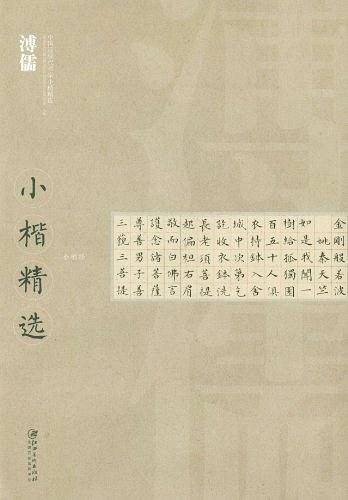 溥儒
小楷精选
金剛般若波
姚秦天竺
如是我聞一
樹給孤獨園
百五十人俱
衣持鉢入舍
城中次第乞
訖收衣鉢洗
長老須菩提
起偏袒右肩
敬而白佛言
護念諸菩薩
尊善男子善
三藐三菩提